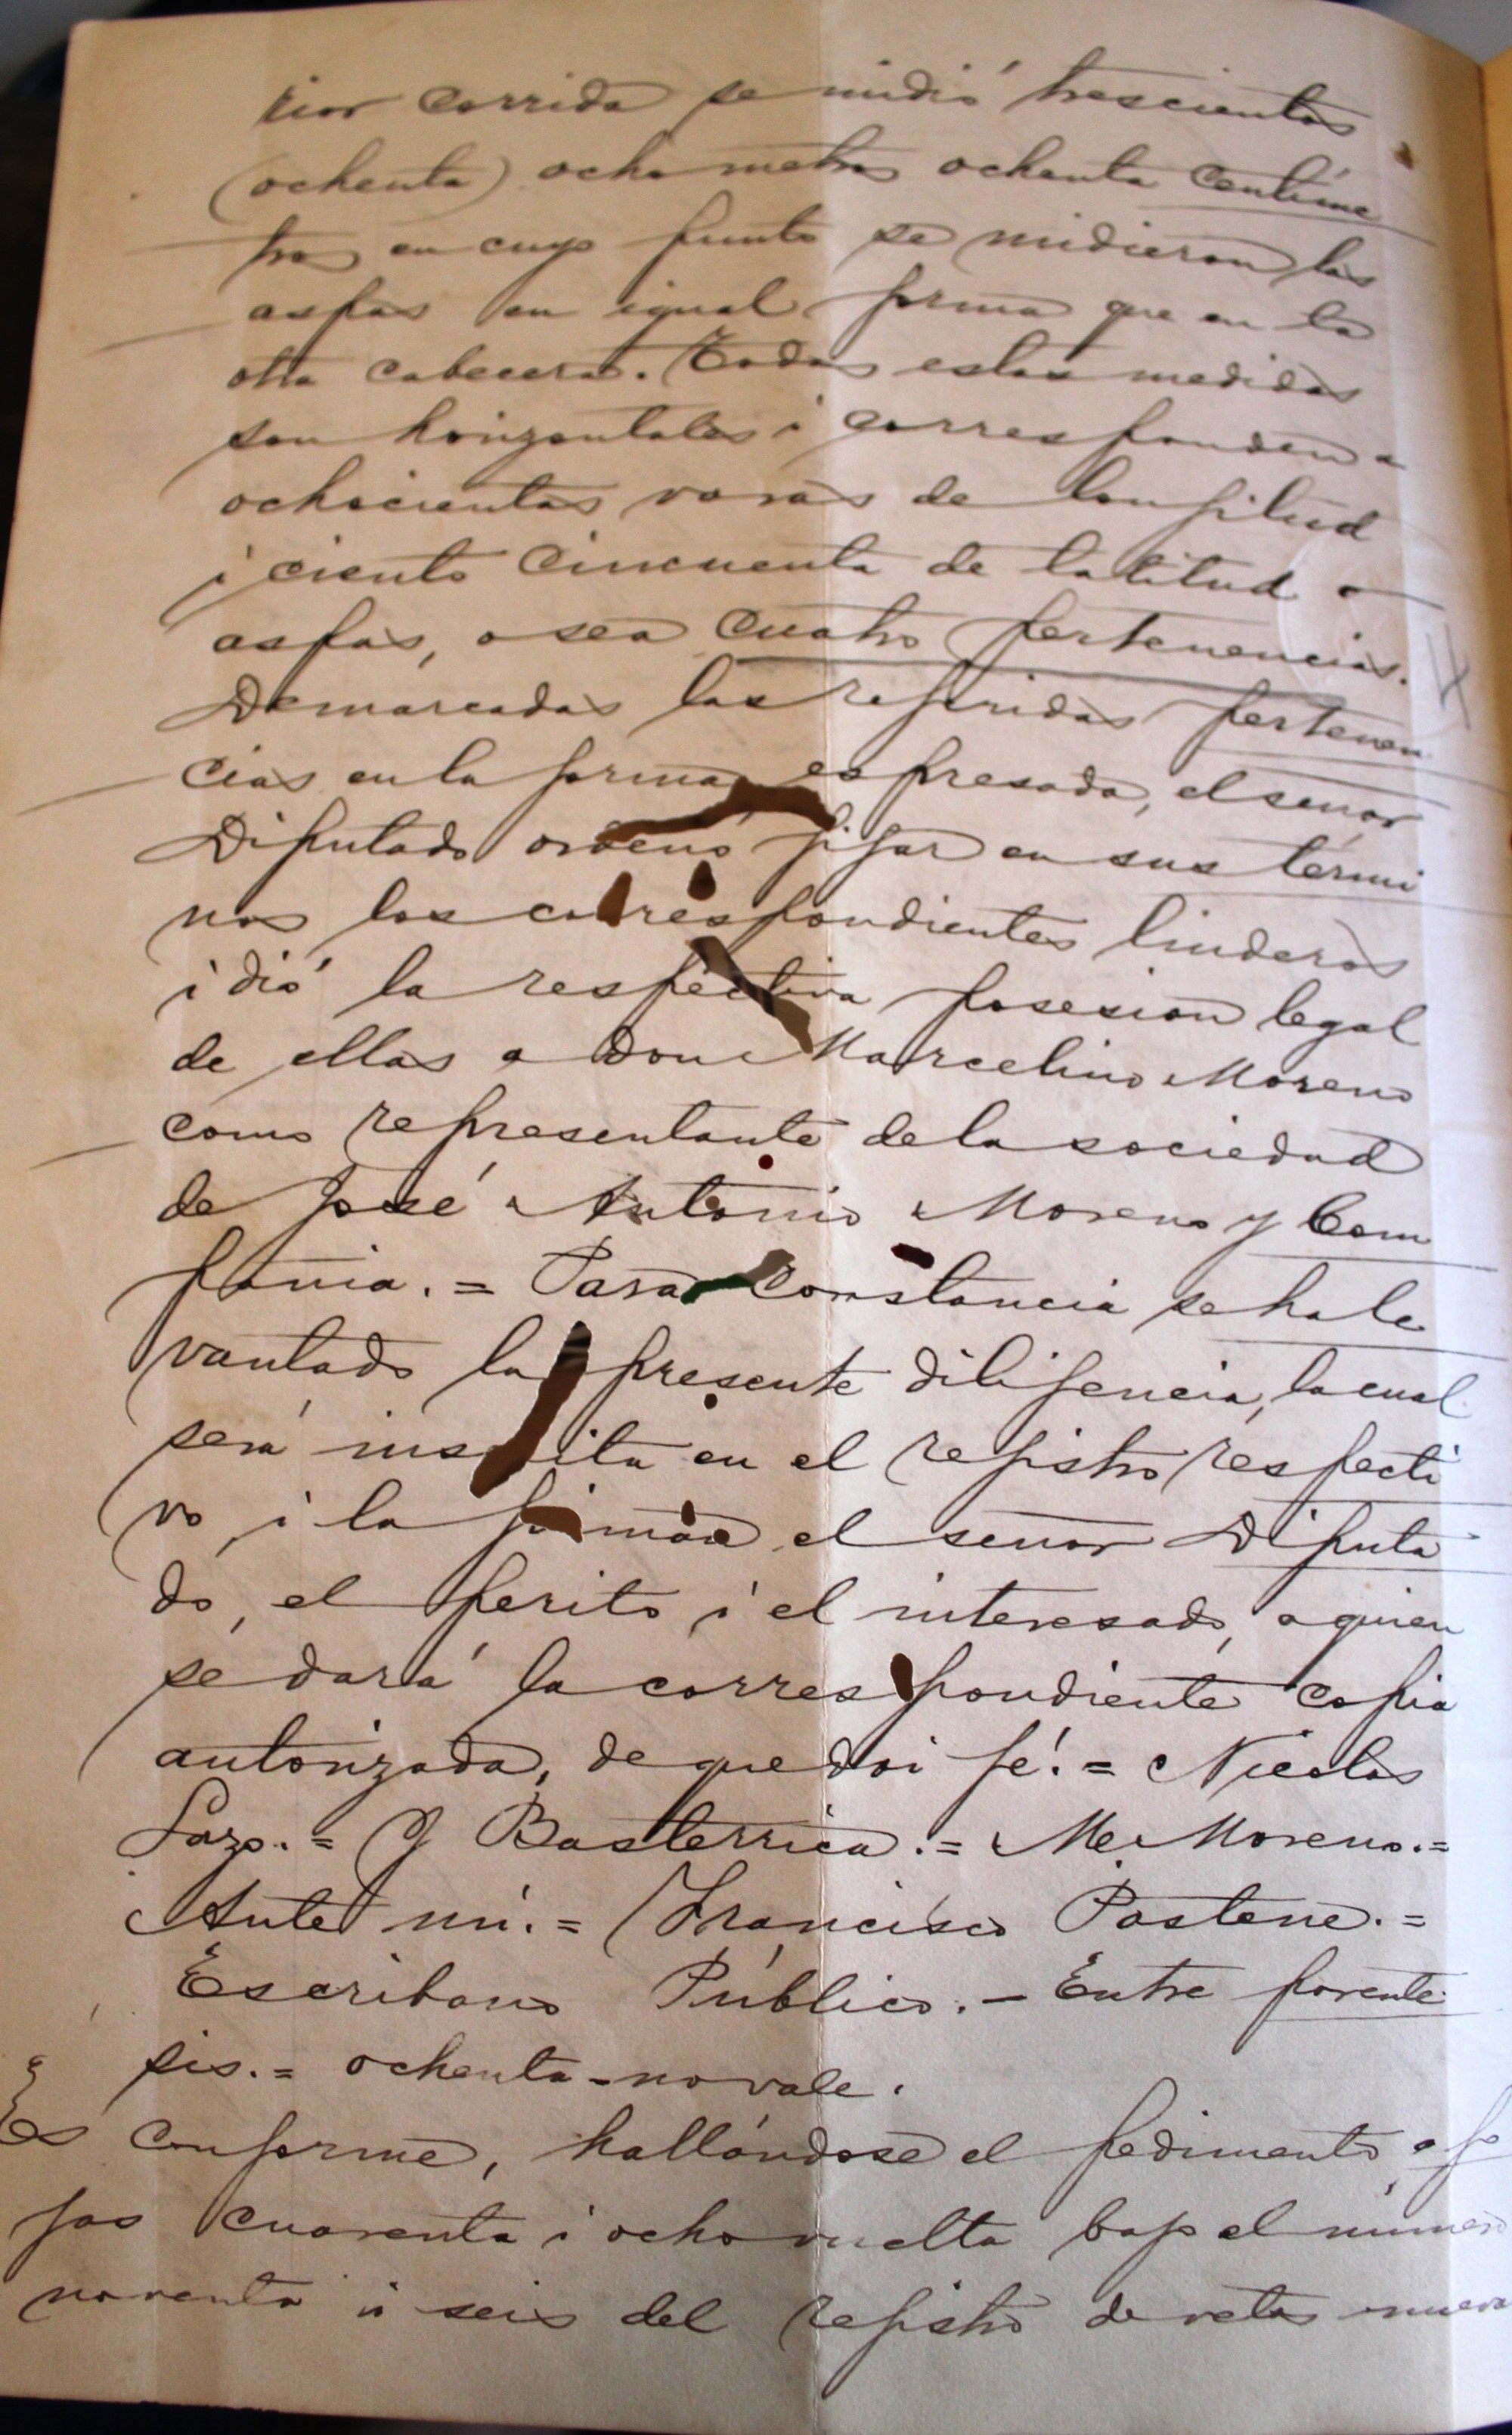 rior corrida se midió trescientos
(ochenta) ocho metros ochenta centíme
tros en cuyo punto se midieron las
aspas en igual forma que en la
otra cabecera. Todas estas medidas
son horizontales i corresponden a
ochocientas varas de lonjitud
i ciento cincuenta de latitud o
aspas, o sea cuatro pertenencias.
Demarcadas las referidas pertenen
cias en la forma espresada, el señor
Diputado ordenó fijar en sus térmi
nos los correspondientes linderos
i dió la respectiva posesion legal
de ellas a don Marcelino Moreno
como representante de la sociedad
de José Antonio Moreno y Com
pania. = Para constancia se ha le
vantado la presente dilijencia, la cual
será ins ita en el rejistro respecti
vo, i la firman el señor Diputa
do, el perito i el interesado, a quien
se dará la correspondiente copia
autorizada, de que doi fé. = Nicolas
Lazo. = J Basterrica. = Me Moreno. =
Ante mí. = Francisco Pastene. =
Escribano Público. - Entre parente
sis. = ochenta - no vale.
Es conforme, hallándose el pedimento a fo
jas cuarenta i ocho vuelta bajo el número
noventa i seis del rejistro de vetas nuevas